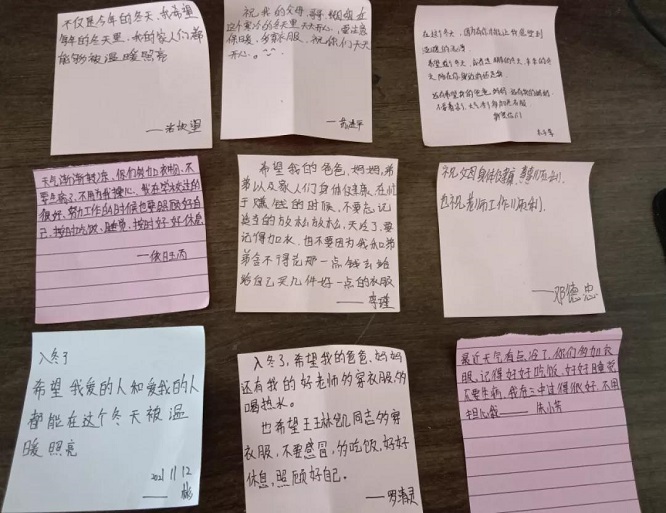 不仅是今年的冬天，我希望
每年的冬天里，我的家人们都
能够被温暖照亮
祝我的父母，哥哥，姐姐在
这个寒冷的冬天里，天天开心，要注意
保暖，多穿衣服，祝你们天天
开心。
在这个冬天，
希望
还有希望我的爸爸妈妈
天气渐渐转凉，你们多加衣物，不
要生病了，不用为我操心，我在学校过的
很好，努力工作的时候也要照顾好自
己，按时吃饭、睡觉，按时好好休息
希望我的爸爸，妈妈，弟
弟以及家人们身体健康，在忙
于赚钱的时候，不要忘记
适当的放松放松，天冷了，要
记得加衣，但不要因为我和弟
弟舍不得花那一点钱去给
自己买几件好一点的衣服
——李瑾
祝父母身体健康，万事顺利，
也祝老师工作顺利，
——邓德忠
入冬了
希望我爱的人和爱我的人
都能在这个冬天被温
暖照亮
2021 11 12
——彬
入冬了，希望我的爸爸，妈妈
还有我的好老师多穿衣服，多
喝热水。
也希望王林凯同志多穿
衣服，不要感冒，多吃饭，好好
休息，照顾好自己。
——罗清灵
最近天气有点冷了，你们多加衣
服，记得好好吃饭，好好睡觉
不要生病，我在二中过得很好，不用
担心我——朱小芳